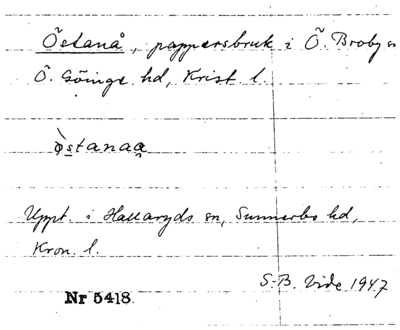 Östanå, pappersbruk i Ö. Broby sn
Ö. Göinge hd, Krist l.
ò̀stanaa̯
Uppt. i Hallaryds sn, Sunnerbo hd,
Kron. l.
S-B. Vide 1947
Nr 5418.